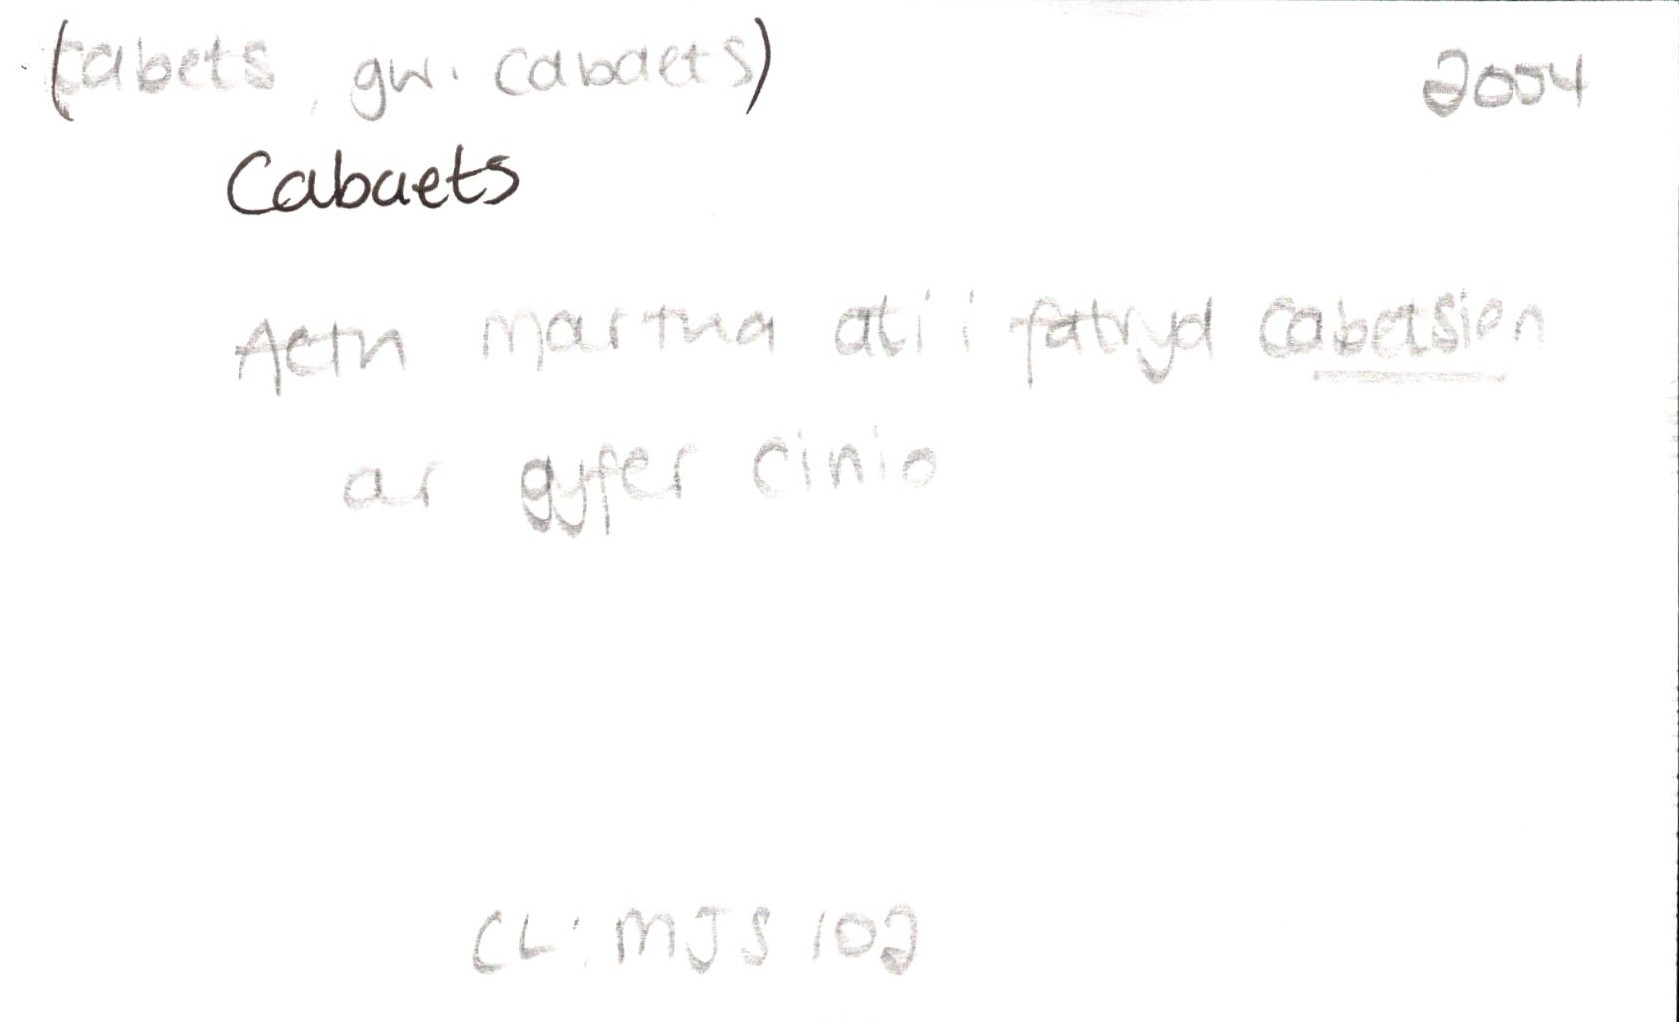 (Cabets, gw. Cabaets) 2004
Cabaets
Aeth Martha ati i fatryd cabetsien
ar gyfer cinio
CL: MJS 102